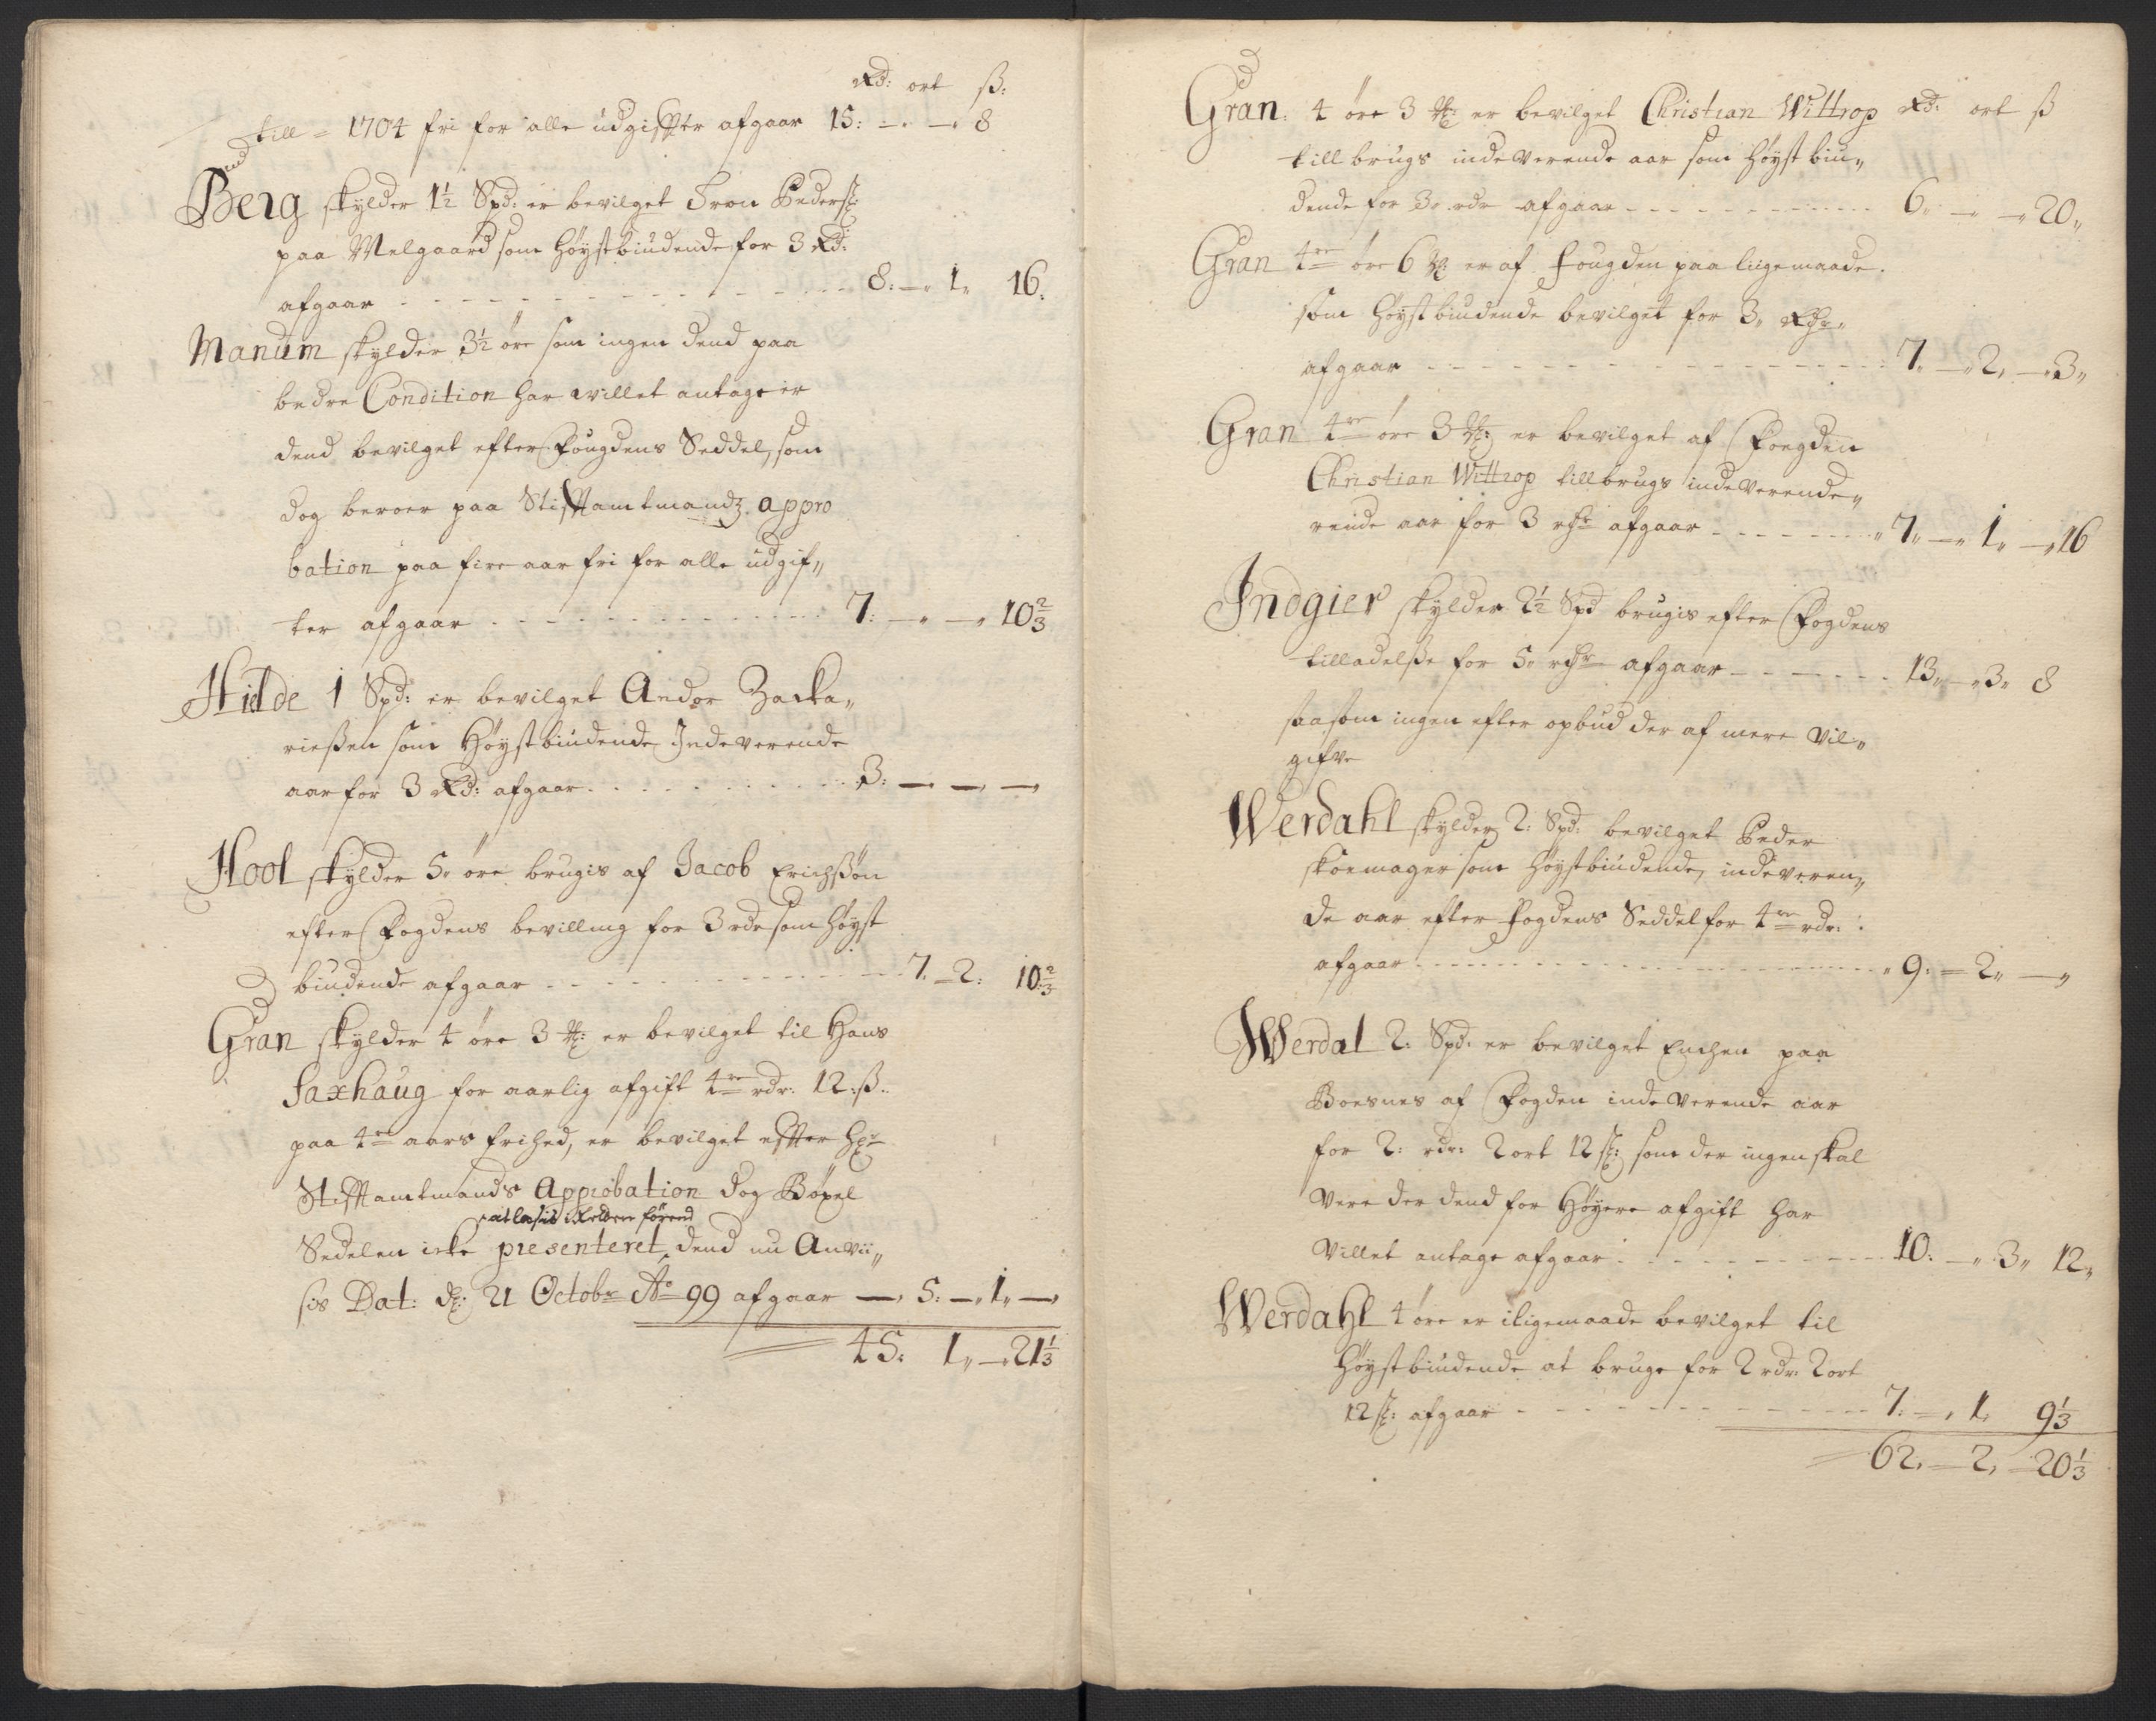 Rd: ort ß:
till = 1704 fri for alle udgiffter afgaar 15: — — 8
Berg skylder 1½ Spd: er bevilget Tron Peders:
paa Melgaard som høystbiudende for 3 Rd:
afgaar 8: — 1, 16.
Manum skylder 3½ øre som ingen dend paa
bedre Condition har willet antage er
dend bevilget efter Fougdens Seddel, som
dog beroer paa Stifftamtmandz appro
bation paa fire aar fri for alle udgif„
ter afgaar 7: — — 10⅔
Hilde 1 Spd: er bevilget Andor Zacka„
rießen som Høystbiudende Indeverende
aar for 3 Rd: afgaar 3: — — —
Hool skylder 5„ øre brugis af Jacob Erichßøn
efter Fogdens bevilling for 3 rdr som høyst
biudende afgaar 7. — 2: 10⅔
Gran skylder 4 øre 3 ℔: er bevilget til Hans
Saxhaug for aarlig afgift 4re rdr: 12:ß:
paa 4re aars frihed, er bevilget effter Hr:
Stifftamtmands Approbation dog Bøxel
Sedelen icke presenteret, dend nu Anvii„
sis Dat: d: 21 Octobr Ao 99 afgaar — 5: — 1„ —
45: 1„ — 21⅓
Gran: 4 øre 3 ℔: er bevilget Christian Wittrop Rd: ort ß
till brugs indeverende aar som høyst biu„
dende for 3„ rdr afgaar 6„ — — 20„
Gran 4re øre 6 er af Fougden paa liigemaade
som høystbiudende bevilget for 3„ Rdr„
afgaar 7„ — 2, — 3„
Gran 4re øre 3 ℔: er bevilget af Foegden
Christian Wittrop till brugs indeverende„
rende aar for 3 rdr afgaar 7„ — 1„ — 16
Indgier skylder 2½ Spd brugis efter Fogdens
tilladelße for 5„ rdr afgaar 13„ — 3„ 8
saasom ingen efter opbud der af mere vil„
gifve
Werdahl skylder 2: Spd: bevilget Peder
skoemager som høystbiudende, indeveren„
de aar efter Fogdens Seddel for 4re rdr:
afgaar 9: = 2„ —
Werdal 2: Spd: er bevilget Enchen paa
Boesnes af Fogden indeverende aar
for 2: rdr: 2 ort 12 ß: som der ingen skal
vere der dend for Høyere afgift har
villet antage afgaar 10: — 3„ 12„
Werdahl 4 øre er iligemaade bevilget til
Høystbiudende at bruge for 2 rdr: 2 ort
12 ß: afgaar 7: — 1, 9⅓
62, — 2, — 20⅓